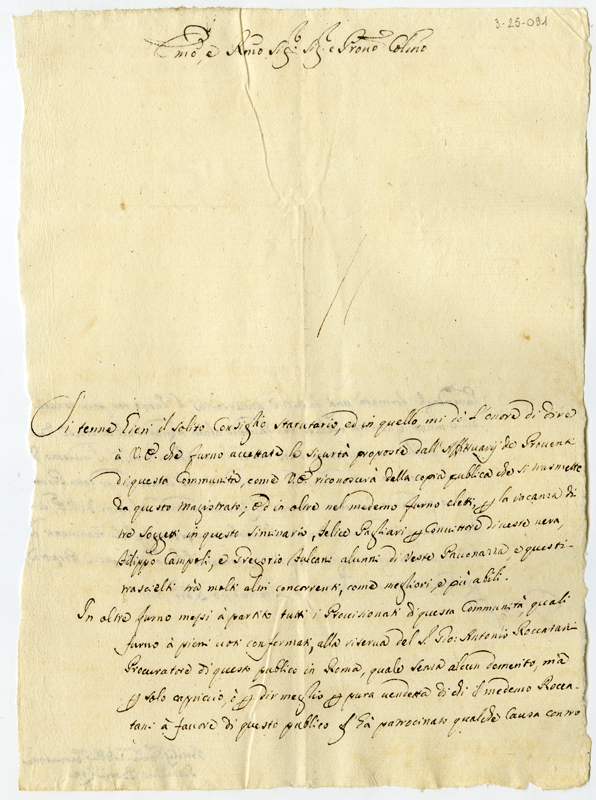 3-25-091
Emo, e Rmo Sigr. Sig. e Prone Colmo
Si tenne Eieri il solito Consiglio statutario, ed in quello, mi dò l'onore di dire
à V.E. che furno accettate le sigurtà proposte dall' Affittuarij de Proventi
di questa Communità, come V.E. riconoscerà della copia publica che si trasmette
da questo Magistrato; Ed in oltre nel medemo furno eletti, p la vacanza di
tre Soggetti in questo Siminario, Felice Pagliari p Convittore di veste nera,
Filippo Campoli, e Gregorio Fulcani alunni di Veste Pavonazza, e questi
trascielti trà molti altri concorrenti, come megliori, e più abili.
In oltre furno messi à partito tutti i Provisionati di questa Communità quali
furno à pieni voti confermati, alla riserva del S. Gio: Antonio Roccatani
Procuratore di questo publico in Roma, quale senza alcun demerito, mà
p solo capriccio, ò p dir meglio p pura vendetta di chi il medemo Rocca-
tani à favore di questo publico hà patrocinato qualche Causa contro